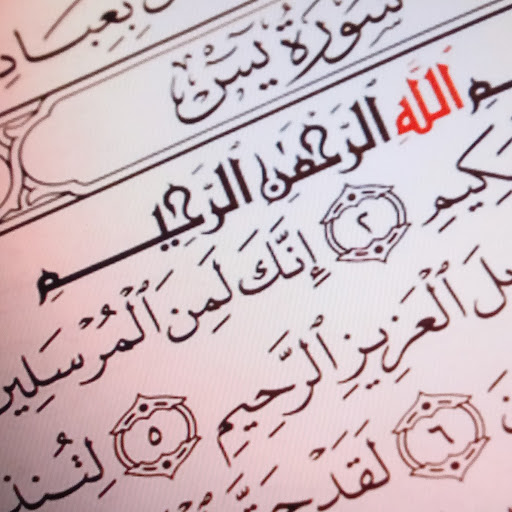 بِعِبَادِ
سُورَةُ يسٓ
ـمِ ٱللَّهِ ٱلرَّحْمَٰنِ ٱلرَّحِيمِ
ـكِيمِ ٢ إِنَّكَ لَمِنَ ٱلْمُرْسَلِينَ
ـلَ ٱلْعَزِيزِ ٱلرَّحِيمِ ٥ لِتُنذِ
٦ لَقَدْ حَقَّ